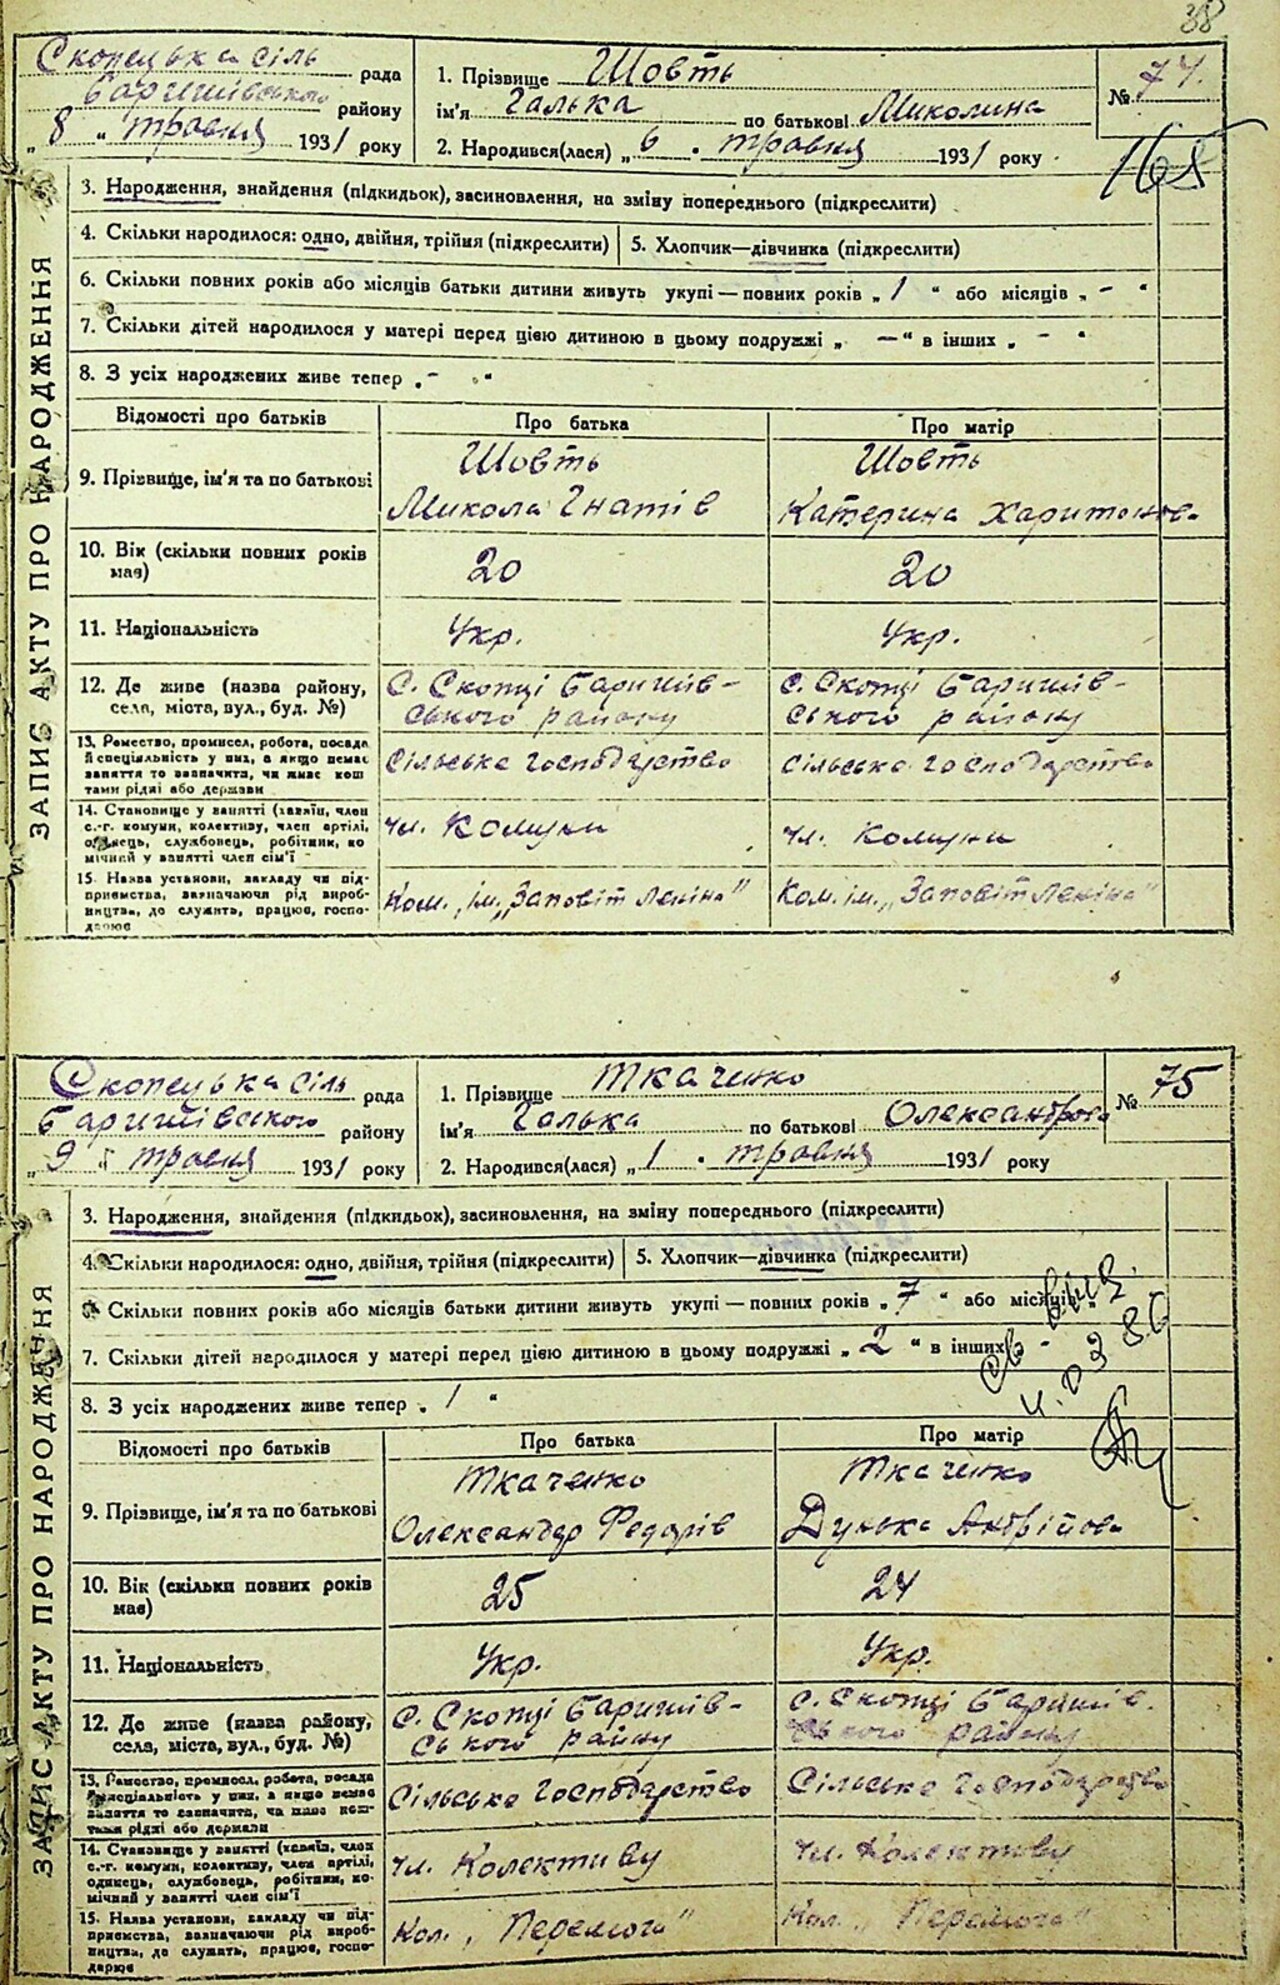 38
Скопецька сіль рада
Баришівського району
„ 8 " травня 1931 року
1. Прізвище Шовть
ім'я Галька по батькові Миколина
2. Народився(лася) „ 6 " травня 1931 року
№ 74.
ЗАПИС АКТУ ПРО НАРОДЖЕННЯ
3. Народження, знайдення (підкидьок), засиновлення, на зміну попереднього (підкреслити)
4. Скільки народилося: одно, двійня, трійня (підкреслити) 5. Хлопчик—дівчинка (підкреслити)
6. Скільки повних років або місяців батьки дитини живуть укупі — повних років „ 1 " або місяців „ - "
7. Скільки дітей народилося у матері перед цією дитиною в цьому подружжі „ — " в інших „ - "
8. З усіх народжених живе тепер „ - "
Відомості про батьків Про батька Про матір
9. Прізвище, ім'я та по батькові
Шовть
Микола Гнатів
Шовть
Катерина Харитонова
10. Вік (скільки повних років
має)
20
20
11. Національність Укр. Укр.
12. Де живе (назва району,
села, міста, вул., буд. №)
С. Скопці Баришів-
ського району
с. Скопці Баришів-
ського району
13. Ремество, промисел, робота, посада
й спеціяльність у них, а якщо немає
заняття то зазначити, чи живе кош
тами рідні або держави
Сільське господарство
Сільське господарство
14. Становище у занятті (хазяїн, член
с.-г. комуни, колективу, член артілі,
одинець, службовець, робітник, по
мічний у занятті член сім'ї
чл. Комуни
чл. Комуни
15. Назва установи, закладу чи під-
приємства, зазначаючи рід вироб-
ництва, де служить, працює, госпо-
дарює
Ком. ім. „Заповіт Леніна"
Ком. ім. „Заповіт Леніна"
Скопецька сіль рада
Баришівського району
„ 9 " травня 1931 року
1. Прізвище Ткаченко
ім'я Галька по батькові Олександрова
2. Народився(лася) „ 1 " травня 1931 року
№ 75
ЗАПИС АКТУ ПРО НАРОДЖЕННЯ
3. Народження, знайдення (підкидьок), засиновлення, на зміну попереднього (підкреслити)
4. Скільки народилося: одно, двійня, трійня (підкреслити) 5. Хлопчик—дівчинка (підкреслити)
Скільки повних років або місяців батьки дитини живуть укупі — повних років „ 7 " або місяців „
7. Скільки дітей народилося у матері перед цією дитиною в цьому подружжі „ 2 " в інших -
8. З усіх народжених живе тепер „ 1 "
Відомості про батьків Про батька Про матір
9. Прізвище, ім'я та по батькові
Ткаченко
Олександр Федорів
Ткаченко
Дунька Андрійова
10. Вік (скільки повних років
має)
25
24
11. Національність Укр. Укр.
12. Де живе (назва району,
села, міста, вул., буд. №)
С. Скопці Баришів-
ського району
с. Скопці Баришів-
ського району
13. Ремество, промисел, робота, посада
й спеціяльність у них, а якщо немає
заняття то зазначити, чи живе кош-
тами рідні або держави
Сільське господарство
Сільське господарство
14. Становище у занятті (хазяїн, член
с.-г. комуни, колективу, член артілі,
одинець, службовець, робітник, по-
мічний у занятті член сім'ї
чл. Колективу
чл. Колективу
15. Назва установи, закладу чи під-
приємства, зазначаючи рід вироб-
ництва, де служить, працює, госпо-
дарює
Кол. „Перемога"
Кол. „Перемога"